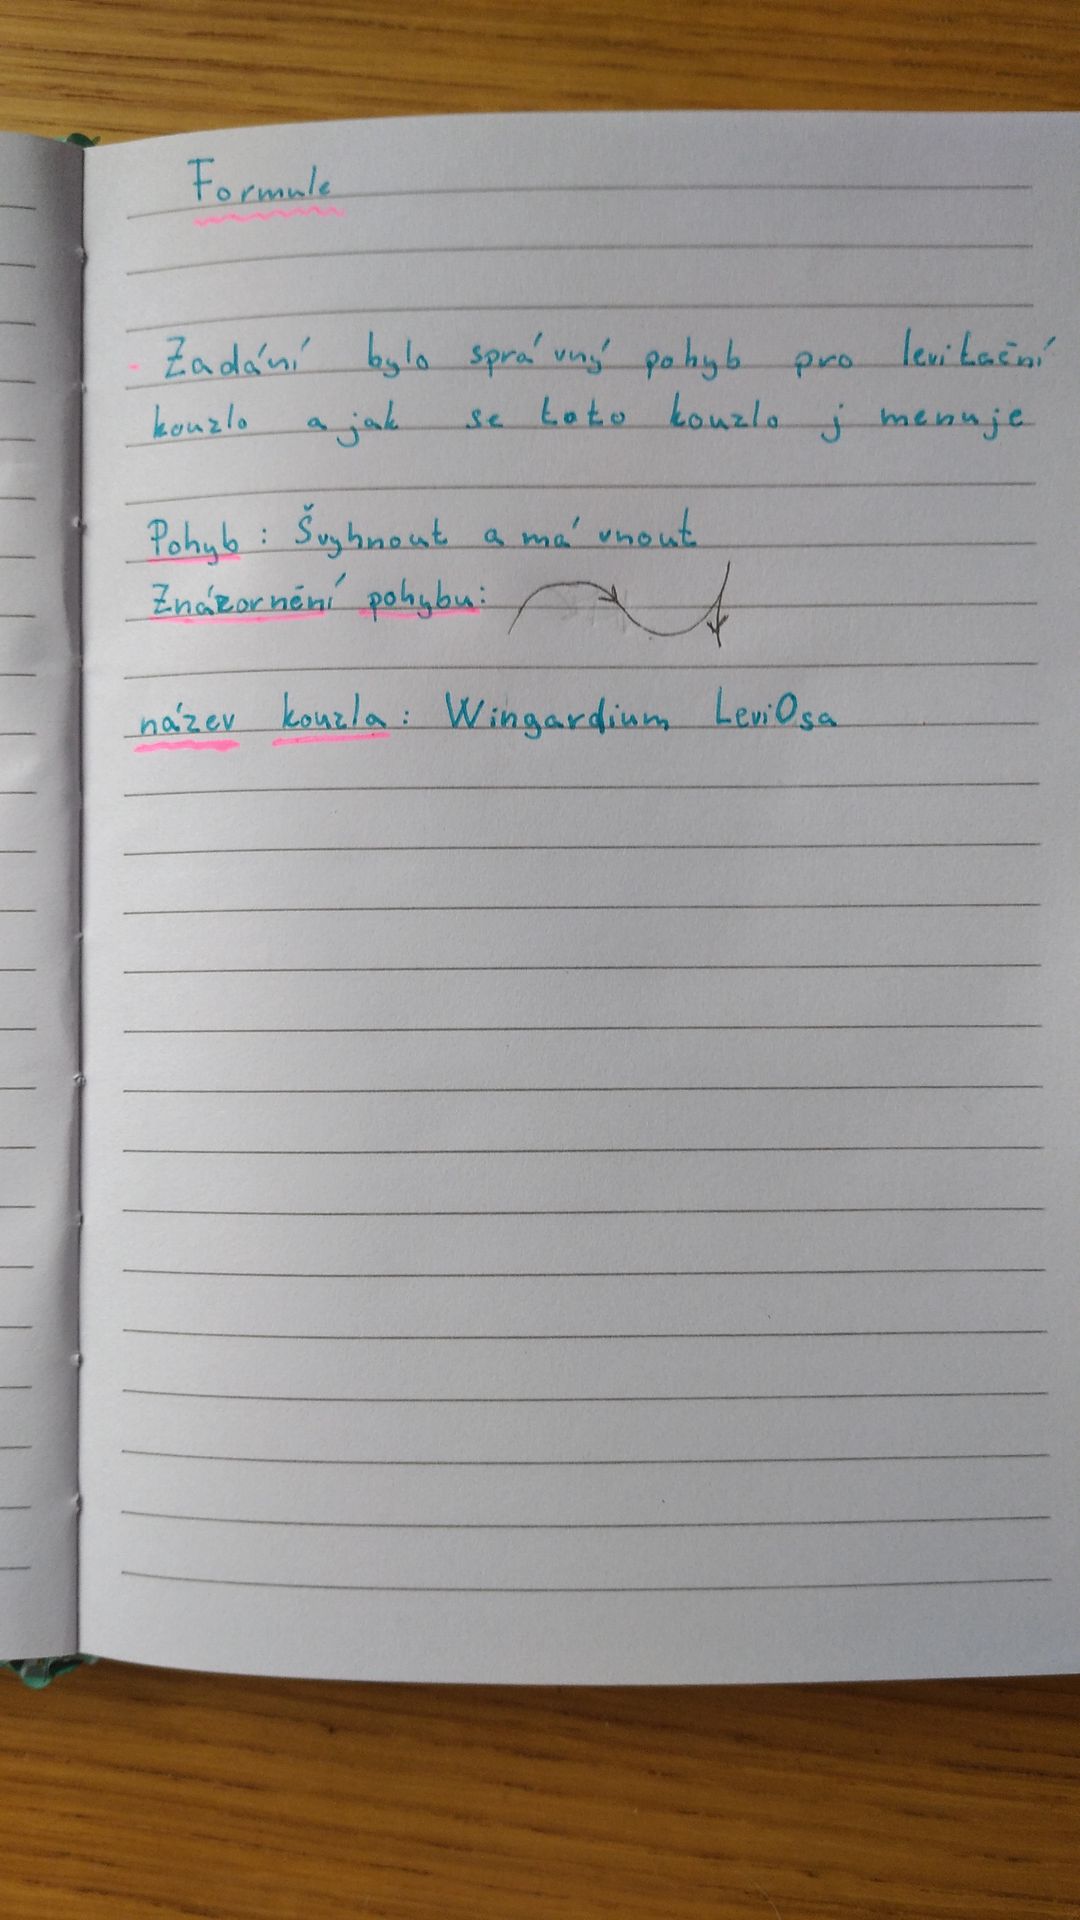 Formule
Zadání bylo správný pohyb pro levitační
kouzlo a jak se toto kouzlo jmenuje
Pohyb: Švyhnout a mávnout
Znázornění pohybu:
název kouzla: Wingardium LeviOsa